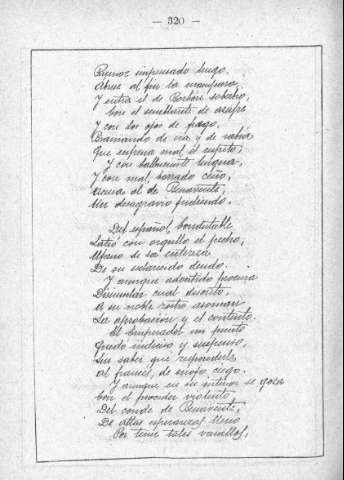 — 320 —
Rumor impensado luego,
Abrese al fin la mampara
Y entra el de Borbon soberbio,
Con el semblante de azufre
Y con dos ojos de fuego,
Bramando de ira y de rabia
Que enfrena mal el respeto;
Y con balbuciente lengua,
Y con mal borrado ceño,
Acusa al de Benavente,
Un desagravio pidiendo.
Del español Condestable
Latió con orgullo el pecho,
Ufano de la entereza
De su esclarecido deudo.
Y aunque advertido procura
Disimular cual discreto,
A su noble rostro asoman
La aprobacion y el contento.
El Emperador un punto
Quedó indeciso y suspenso,
Sin saber que responderle
Al francés, de enojo ciego.
Y aunque en su interior se goza
Con el proceder violento
Del conde de Benavente,
De altas esperanzas lleno
Por tener tales vasallos,